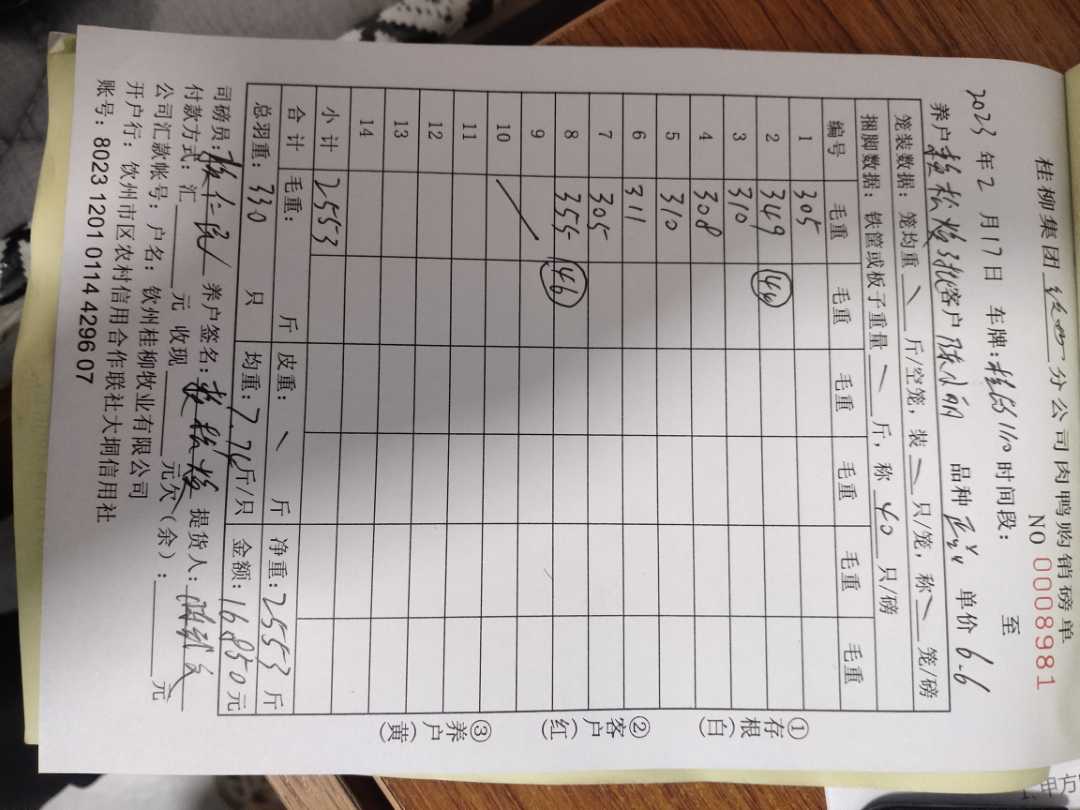 桂柳集团 分公司肉鸭购销磅单
NO 0008981
2023 年 2 月 17 日 车牌: 110 时间段: 至
养户 客户 陈小丽 品种 单价 6.6
笼装数据: 笼均重 \ 斤/空笼, 装 \ 只/笼, 称 \ 笼/磅
捆脚数据: 铁筐或板子重量 \ 斤, 称 40 只/磅
编号 毛重 毛重 毛重 毛重 毛重 毛重
1 305
2 349 44
3 310
4 308
5 310
6 311
7 305
8 355 46
9
10
11
12
13
14
小计 2553
合计 毛重: 斤 皮重: \ 斤 净重: 2553 斤
总羽重: 330 只 均重: 7.74 斤/只 金额: 16850 元
司磅员: 养户签名: 提货人:
付款方式: 汇 元 收现 元欠(余): 元
公司汇款帐号: 户名: 钦州桂柳牧业有限公司
开户行: 钦州市区农村信用合作联社大垌信用社
账号: 8023 1201 0114 4296 07
①存根(白)
②客户(红)
③养户(黄)
1、甲方